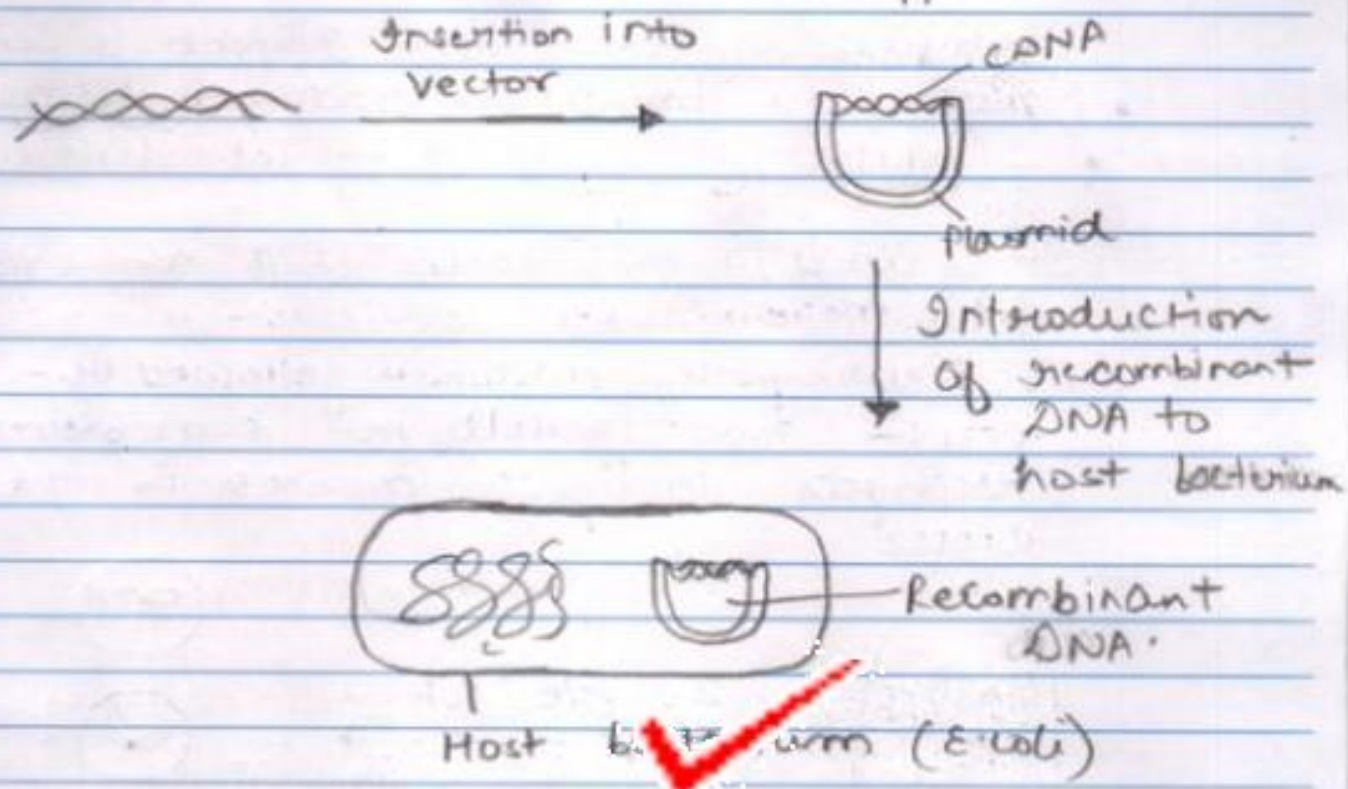 Insertion into
vector
cDNA
plasmid
Introduction
of recombinant
DNA to
host bacterium
Recombinant
DNA.
Host (E.coli)